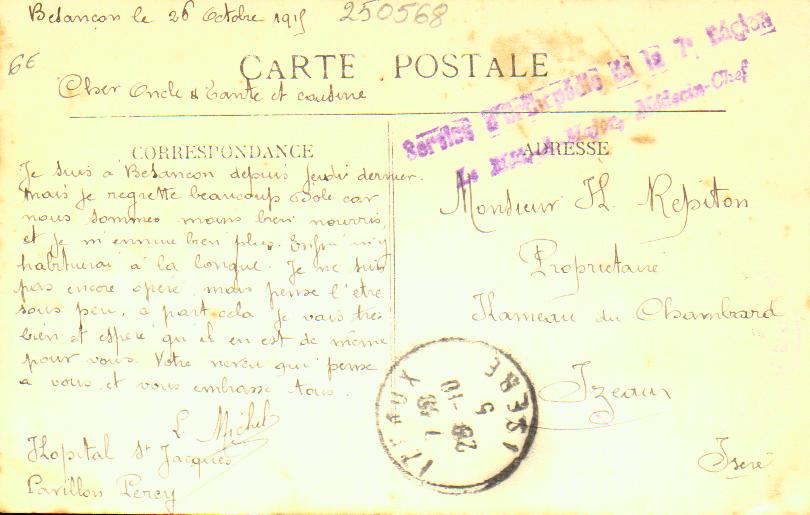 Besançon le 26 Octobre 1915
250568
6€
CARTE POSTALE
Cher Oncle & Tante et cousine
Service d'Orthopédie de la 7e Région
Le Médecin-Major, Médecin-Chef
CORRESPONDANCE
Je suis à Besançon depuis jeudi dernier.
mais je regrette beaucoup Dole car
nous sommes moins bien nourris
et je m'ennuie bien plus. Enfin m'y
habituerai à la longue. Je ne suis
pas encore opéré mais pense l'etre
sous peu, à part cela je vais très
bien et espère qu'il en est de même
pour vous. Votre neveu qui pense
à vous et vous embrasse tous.
L. Michel
Hopital St Jacques
Pavillon Percy
ADRESSE
Monsieur H. Repiton
Propriétaire
Hameau du Chambard
Izeaux
Isère
IZEAUX
ISERE
28 -10
5